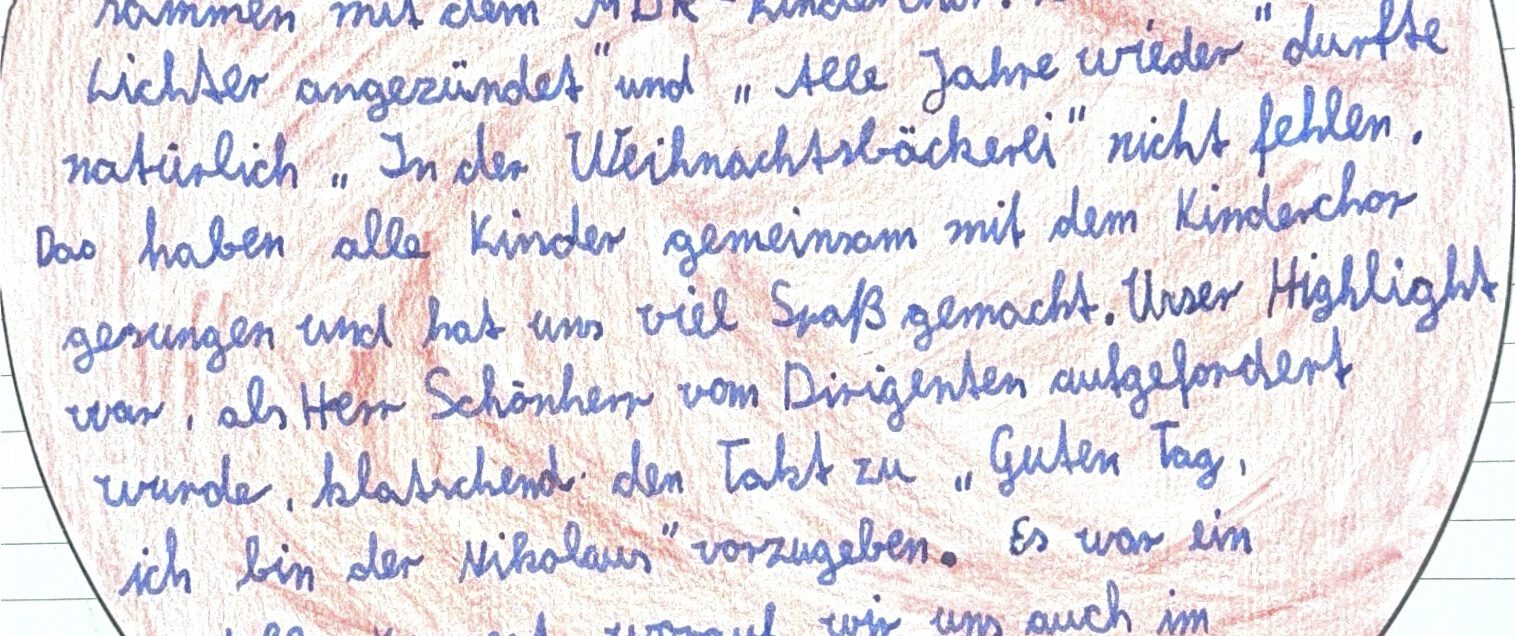 sammen mit dem MDR-Kinderchor.
Lichter angezündet" und „Alle Jahre wieder" durfte
natürlich „In der Weihnachtsbäckerei" nicht fehlen.
Das haben alle Kinder gemeinsam mit dem Kinderchor
gesungen und hat uns viel Spaß gemacht. Unser Highlight
war, als Herr Schönherr vom Dirigenten aufgefordert
wurde, klatschend den Takt zu „Guten Tag,
ich bin der Nikolaus" vorzugeben. Es war ein
worauf wir uns auch im